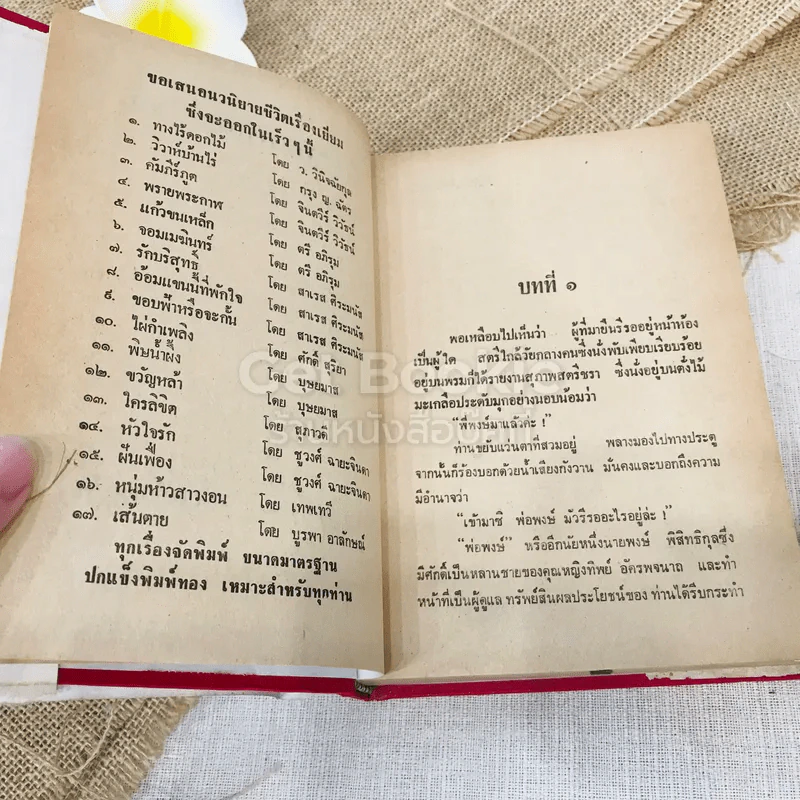 ขอเสนอนวนิยายชีวิตเรื่องเยี่ยม
ซึ่งจะออกในเร็วๆนี้
๑. ทางไร้ดอกไม้ โดย ว. วินิจฉัยกุล
๒. วิวาห์บ้านไร่ โดย กรุง ญ. ฉัตร
๓. คัมภีร์ภูต โดย จินตวีร์ วิวัธน์
๔. พรายพระกาฬ โดย จินตวีร์ วิวัธน์
๕. แก้วขนเหล็ก โดย ตรี อภิรุม
๖. จอมเมฆินทร์ โดย ตรี อภิรุม
๗. รักบริสุทธิ์ โดย สาเรส ศิระมนัส
๘. อ้อมแขนนี้ที่พักใจ โดย สาเรส ศิระมนัส
๙. ขอบฟ้าหรือจะกั้น โดย สาเรส ศิระมนัส
๑๐. ไผ่กำเพลิง โดย ศักดิ์ สุริยา
๑๑. พิษน้ำผึ้ง โดย บุษยมาส
๑๒. ขวัญหล้า โดย บุษยมาส
๑๓. ใครลิขิต โดย สุภาวดี
๑๔. หัวใจรัก โดย ชูวงศ์ ฉายะจินดา
๑๕. ฝันเฟื่อง โดย ชูวงศ์ ฉายะจินดา
๑๖. หนุ่มห้าวสาวงอน โดย เทพเทวี
๑๗. เส้นตาย โดย บูรพา อาลักษณ์
ทุกเรื่องจัดพิมพ์ ขนาดมาตรฐาน
ปกแข็งพิมพ์ทอง เหมาะสำหรับทุกท่าน
บทที่ ๑
พอเหลือบไปเห็นว่า ผู้ที่มายืนรีรออยู่หน้าห้อง
เป็นผู้ใด สตรีใกล้วัยกลางคนซึ่งนั่งพับเพียบเรียบร้อย
อยู่บนพรมก็ได้รายงานสุภาพสตรีชรา ซึ่งนั่งอยู่บนตั่งไม้
มะเกลือประดับมุกอย่างนอบน้อมว่า
“พี่พงษ์มาแล้วค่ะ !”
ท่านขยับแว่นตาที่สวมอยู่ พลางมองไปทางประตู
จากนั้นก็ร้องบอกด้วยน้ำเสียงกังวาน มั่นคงและบอกถึงความ
มีอำนาจว่า
“เข้ามาซิ พ่อพงษ์ มัวรีรออะไรอยู่ล่ะ !”
“พ่อพงษ์” หรืออีกนัยหนึ่งนายพงษ์ พิสิทธิกุลซึ่ง
มีศักดิ์เป็นหลานชายของคุณหญิงทิพย์ อัครพจนาถ และทำ
หน้าที่เป็นผู้ดูแล ทรัพย์สินผลประโยชน์ของ ท่านได้รีบกระทำ